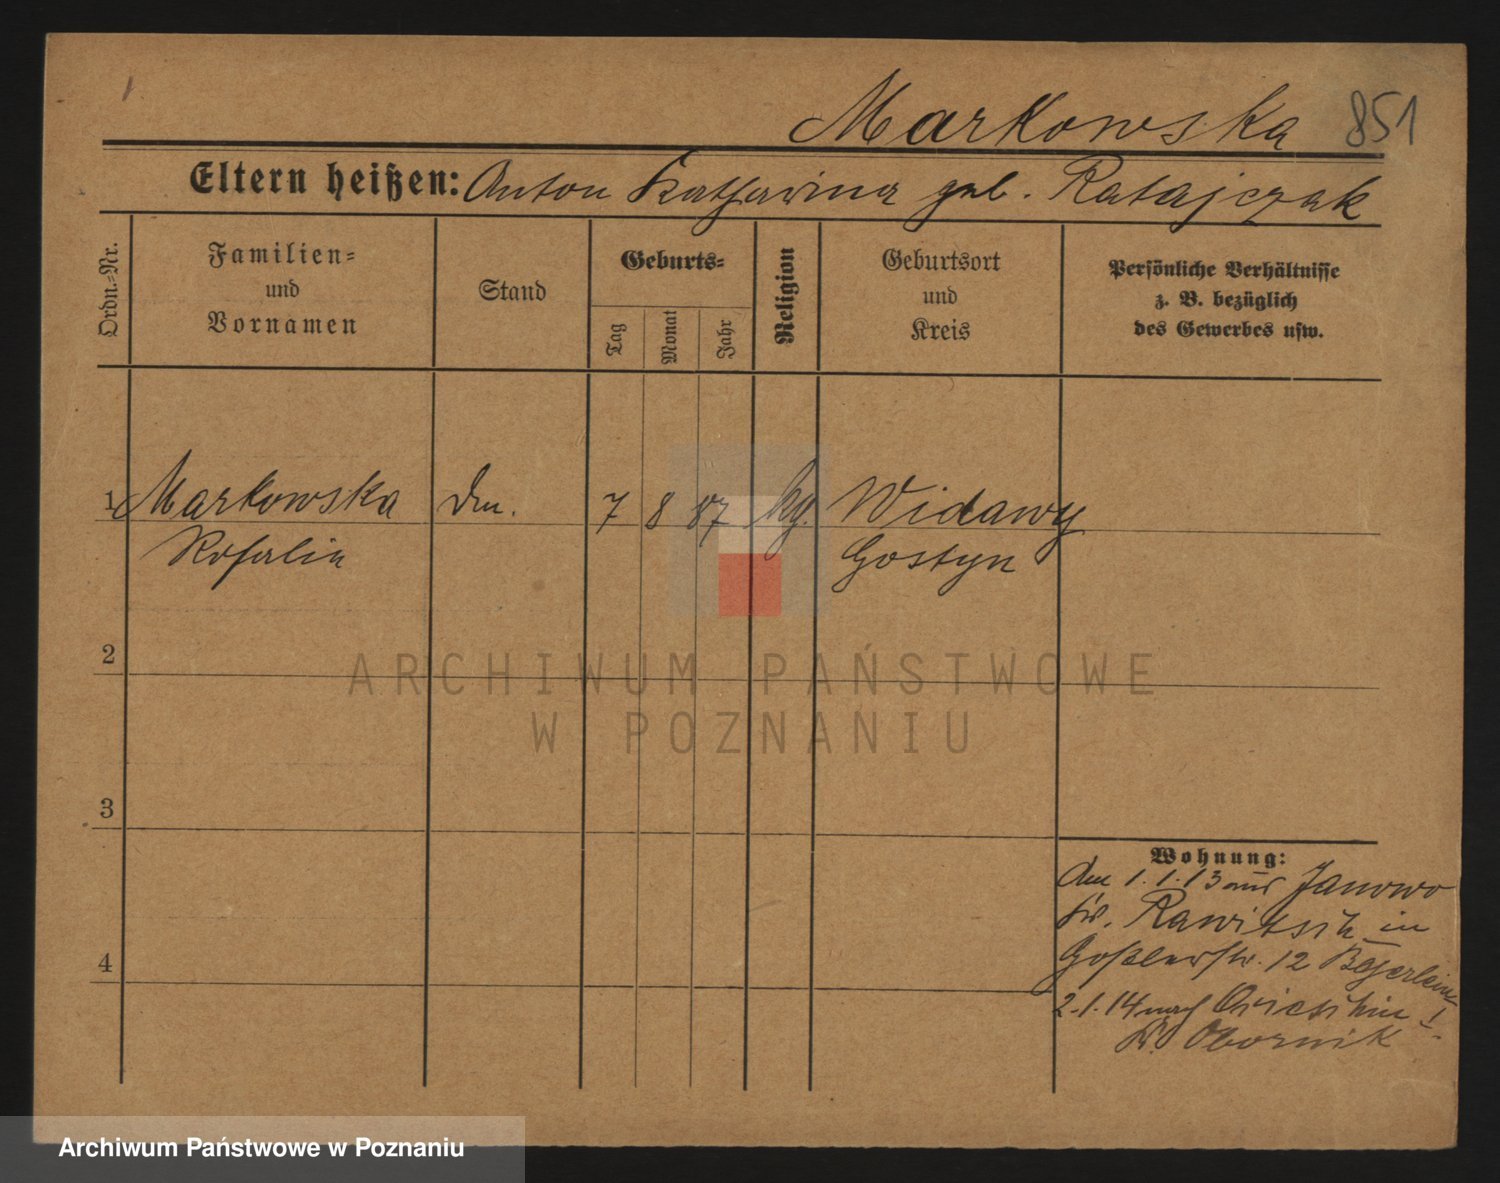 Markowska 851
Eltern heißen: Anton Katharina geb. Ratajczak
Ordn.=Nr.
Familien=
und
Vornamen
Stand
Geburts=
Tag
Monat
Jahr
Religion
Geburtsort
und
Kreis
Persönliche Verhältnisse
z. B. bezüglich
des Gewerbes usw.
1 Markowska 7 8 87 Widawy
Rosalie Gostyn
2
3
4
ARCHIWUM PAŃSTWOWE
W POZNANIU
Wohnung:
den 1.1.13 aus Janowo
Kr. Rawitsch in
Goßlerstr. 12
2.1.14 nach
Kr. Obornik
Archiwum Państwowe w Poznaniu